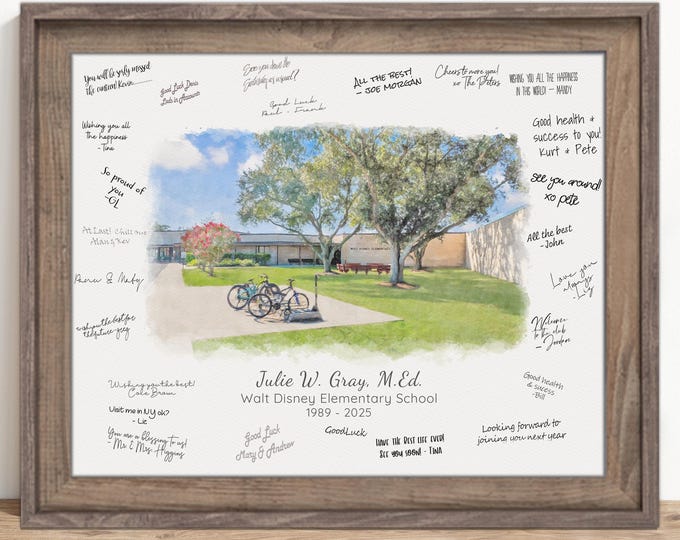 You will be missed
the canteen! Kevin
Good Luck Doris
Lads in Accounts
See you down the
Saturday as usual?
Good Luck
Paul - Frank
ALL THE BEST!
- JOE MORGAN
Cheers to more you!
xo The Peters
WISHING YOU ALL THE HAPPINESS
IN THIS WORLD - MANDY
Wishing you all
the happiness
-Tina
Good health &
success to you!
Kurt & Pete
So proud of
you
-GL
See you around!
xo pete
At Last! Chill out
Alan & Kev
All the best
-John
& Matty
Love you
always
- Lily
wish you the best for
the future -greg
Welcome
to the club
- Jordan
WALT DISNEY ELEMENTARY
Julie W. Gray, M.Ed.
Walt Disney Elementary School
1989 - 2025
Wishing you the best!
Cake Brown
Good health
& success
-Bill
Visit me in NY ok?
- Liz
You are a blessing to us!
- Mr & Mrs. Higgins
Good Luck
Mary & Andrew
GoodLuck
HAVE THE BEST LIFE EVER!
SEE YOU SOON! - TINA
Looking forward to
joining you next year